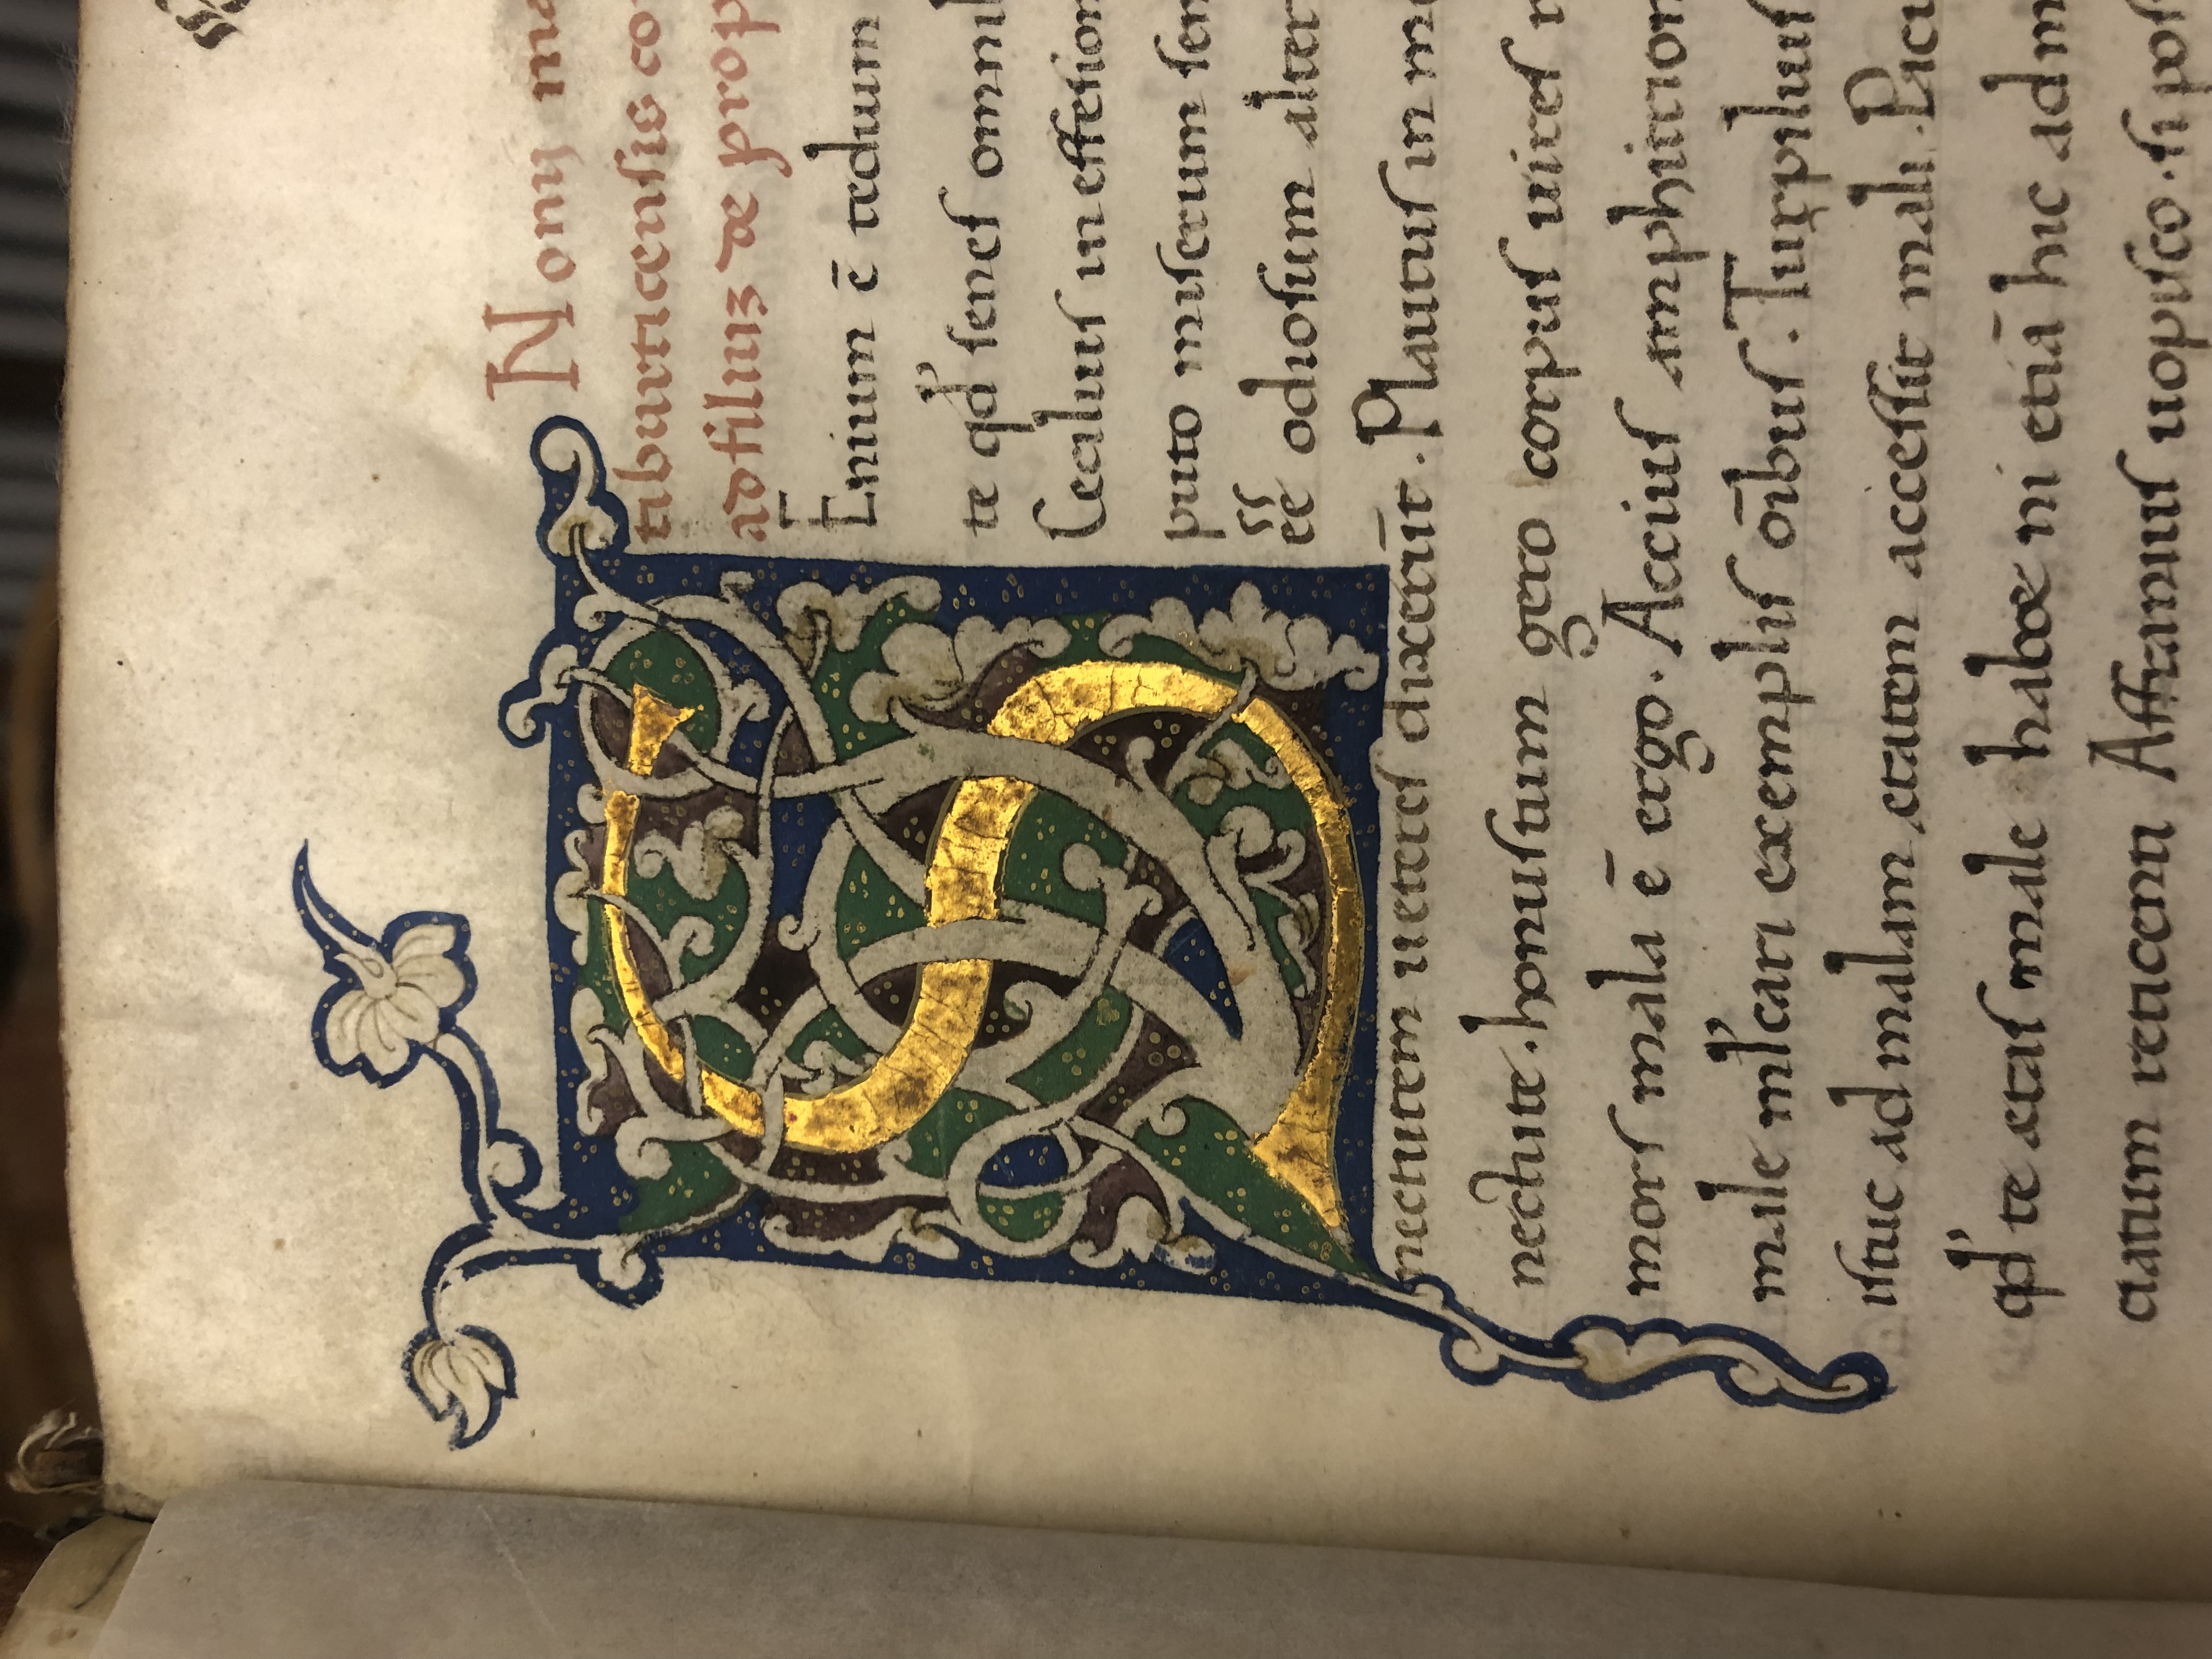 Nonij ma
tiburticensis co
ad filiuz de prop
S
Enium ē tedium
te qd' senes omnib
Cecilius in effesion
puto miserum sen
eē odiosum alter
nectutem ueteres dixerūt. Plautus in me
nectute. honustum gero corpus uires
mors mala ē ergo. Accius amphitrion
male ml'cari exemplis oībus. Turpilius
istuc ad malam etatem accessit mali. Pacu
qd' te etas male habet ni etiā hic ad m
reticent Affranius uopisco. si pos